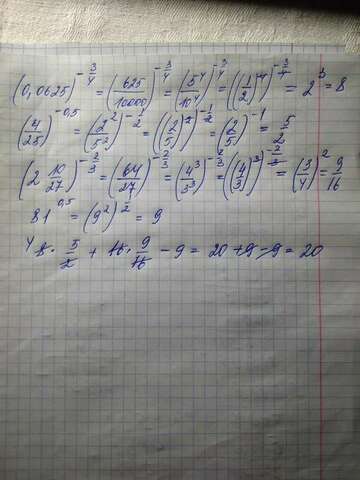 (0,0625)^{-\frac{3}{4}} = (\frac{625}{10000})^{-\frac{3}{4}} = (\frac{5^4}{10^4})^{-\frac{3}{4}} = ((\frac{1}{2})^4)^{-\frac{3}{4}} = 2^3 = 8
(\frac{4}{25})^{-0,5} = (\frac{2^2}{5^2})^{-\frac{1}{2}} = ((\frac{2}{5})^2)^{-\frac{1}{2}} = (\frac{2}{5})^{-1} = \frac{5}{2}
(2\frac{10}{27})^{-\frac{2}{3}} = (\frac{64}{27})^{-\frac{2}{3}} = (\frac{4^3}{3^3})^{-\frac{2}{3}} = ((\frac{4}{3})^3)^{-\frac{2}{3}} = (\frac{3}{4})^2 = \frac{9}{16}
81^{0,5} = (9^2)^{\frac{1}{2}} = 9
4 8 · \frac{5}{2} + 16 · \frac{9}{16} - 9 = 20 + 9 - 9 = 20